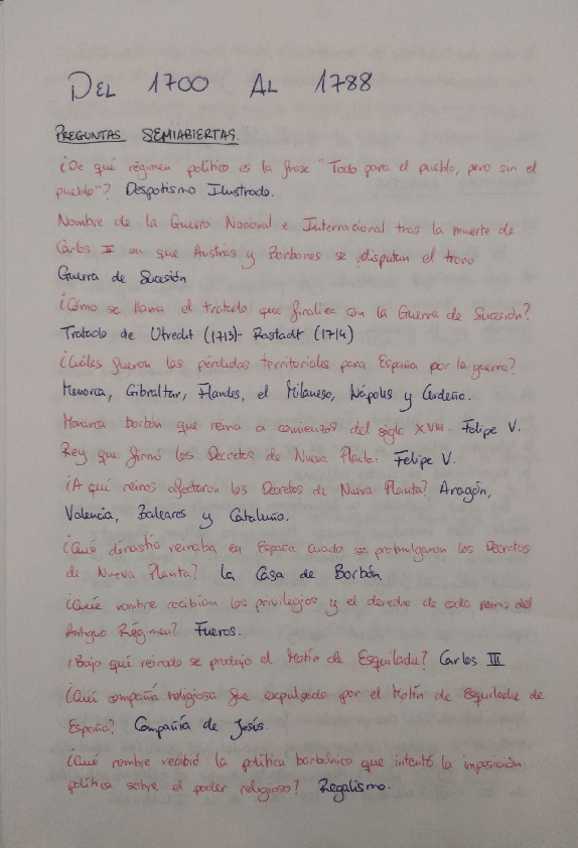 DEL 1700 AL 1788
PREGUNTAS SEMIABIERTAS
¿De qué régimen político es la frase "Todo para el pueblo, pero sin el
pueblo"? Despotismo Ilustrado.
Nombre de la Guerra Nacional e Internacional tras la muerte de
Carlos II en que Austrias y Borbones se disputan el trono
Guerra de Sucesión
¿Cómo se llama el tratado que finaliza con la Guerra de Sucesión?
Tratado de Utrecht (1713)- Rastadt (1714)
¿Cuáles fueron las pérdidas territoriales para España por la guerra?
Menorca, Gibraltar, Flandes, el Milaneso, Nápoles y Cerdeña.
Monarca borbón que reina a comienzos del siglo XVIII. Felipe V.
Rey que firmó los Decretos de Nueva Planta: Felipe V.
¿A qué reinos afectaron los Decretos de Nueva Planta? Aragón,
Valencia, Baleares y Cataluña.
¿Qué dinastía reinaba en España cuado se promulgaron los Decretos
de Nueva Planta? La Casa de Borbón.
¿Qué nombre recibían los privilegios y el derecho de cada reino del
Antiguo Régimen? Fueros.
¿Bajo qué reinado se produjo el Motín de Esquilache? Carlos III
¿Qué compañía religiosa fue expulsada por el Motín de Esquilache de
España? Compañía de Jesús.
¿Qué nombre recibió la política borbónica que intentó la imposición
política sobre el poder religioso? Regalismo.